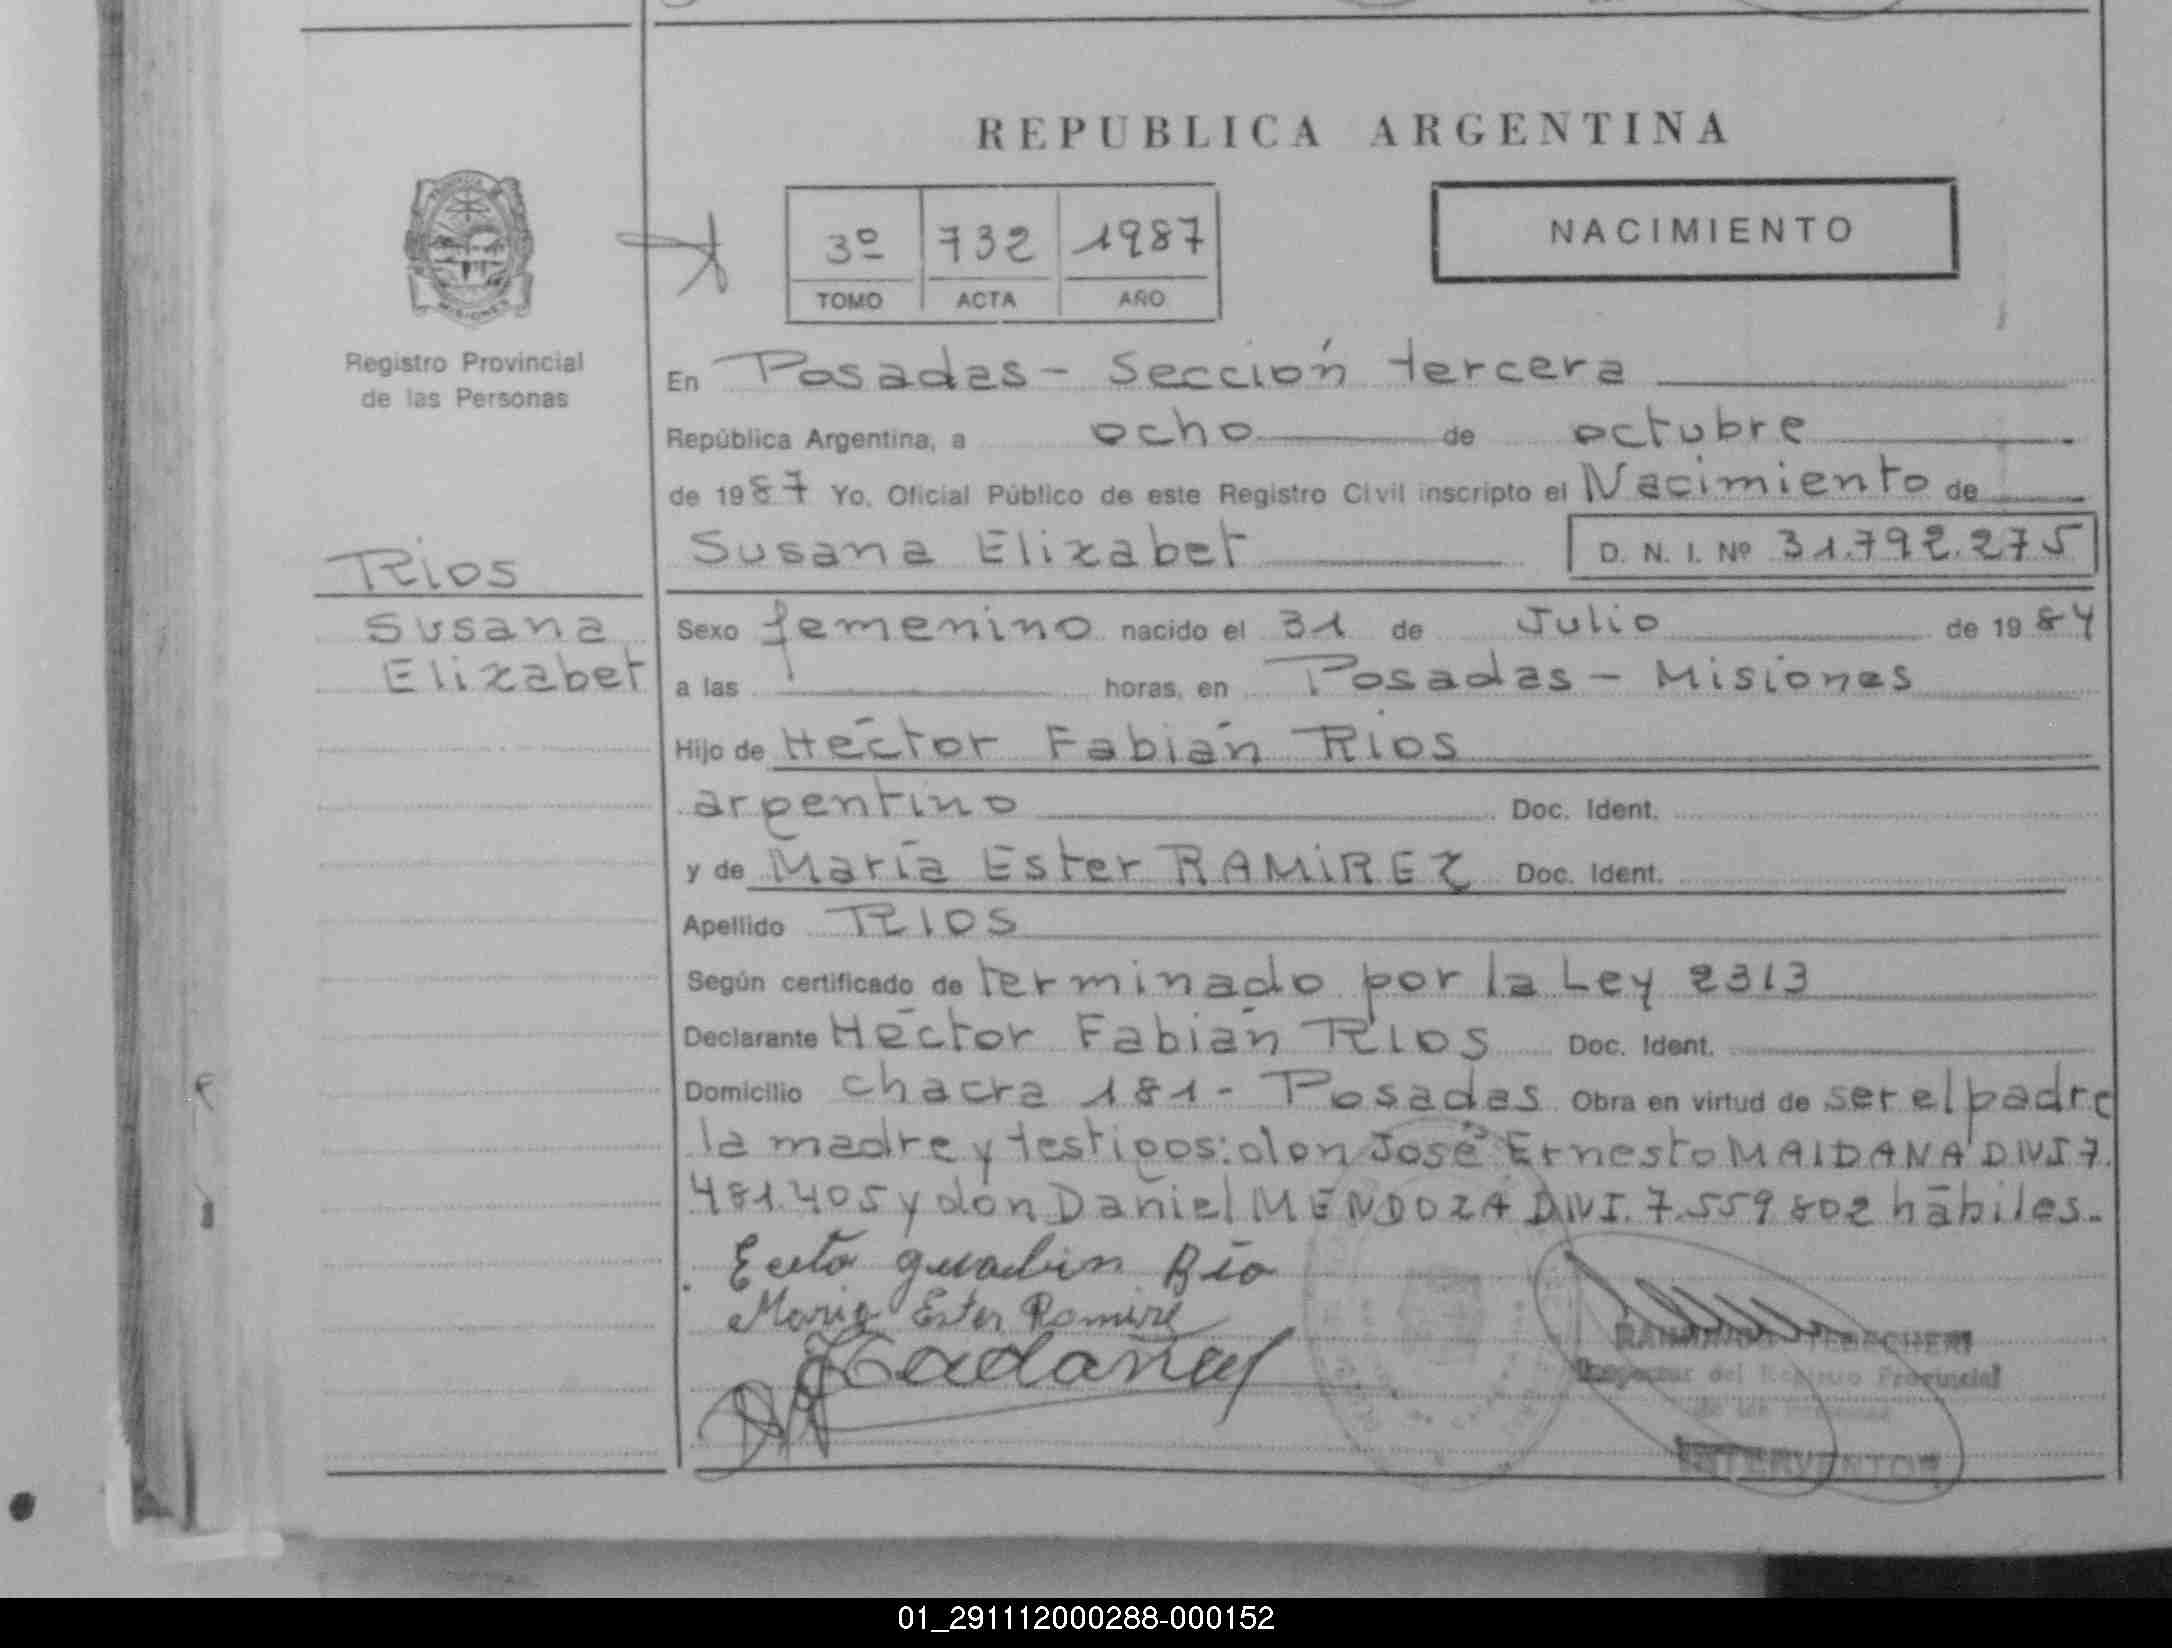 REPUBLICA ARGENTINA
NACIMIENTO
3º 732 1987
TOMO ACTA AÑO
Registro Provincial
de las Personas
En Posadas - Sección tercera
República Argentina, a ocho de octubre
de 1987 Yo, Oficial Público de este Registro Civil inscripto el Nacimiento de
Susana Elizabet D. N. I. Nº 31.792.275
Rios
Susana
Elizabet
Sexo femenino nacido el 31 de Julio de 1984
a las horas, en Posadas - Misiones
Hijo de Héctor Fabián Rios
argentino Doc. Ident.
y de María Ester RAMIREZ Doc. Ident.
Apellido RIOS
Según certificado de terminado por la Ley 2313
Declarante Héctor Fabián RIOS Doc. Ident.
Domicilio chacra 181 - Posadas Obra en virtud de ser el padre
la madre y testigos: don José Ernesto MAIDANA DNI 7.
481.405 y don Daniel MENDOZA DNI. 7.559.802 hábiles.-
Maria Ester Ramire
Inspector del Registro Provincial
de las Personas
INTERVENTOR
01_291112000288-000152